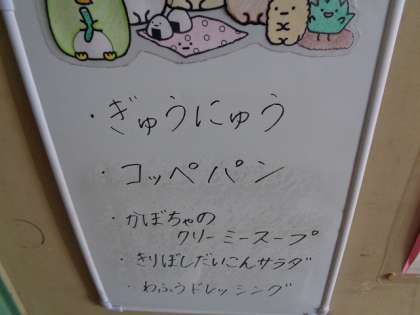 ・ぎゅうにゅう
・コッペパン
・かぼちゃの
クリーミースープ
・きりぼしだいこんサラダ
・わふうドレッシング